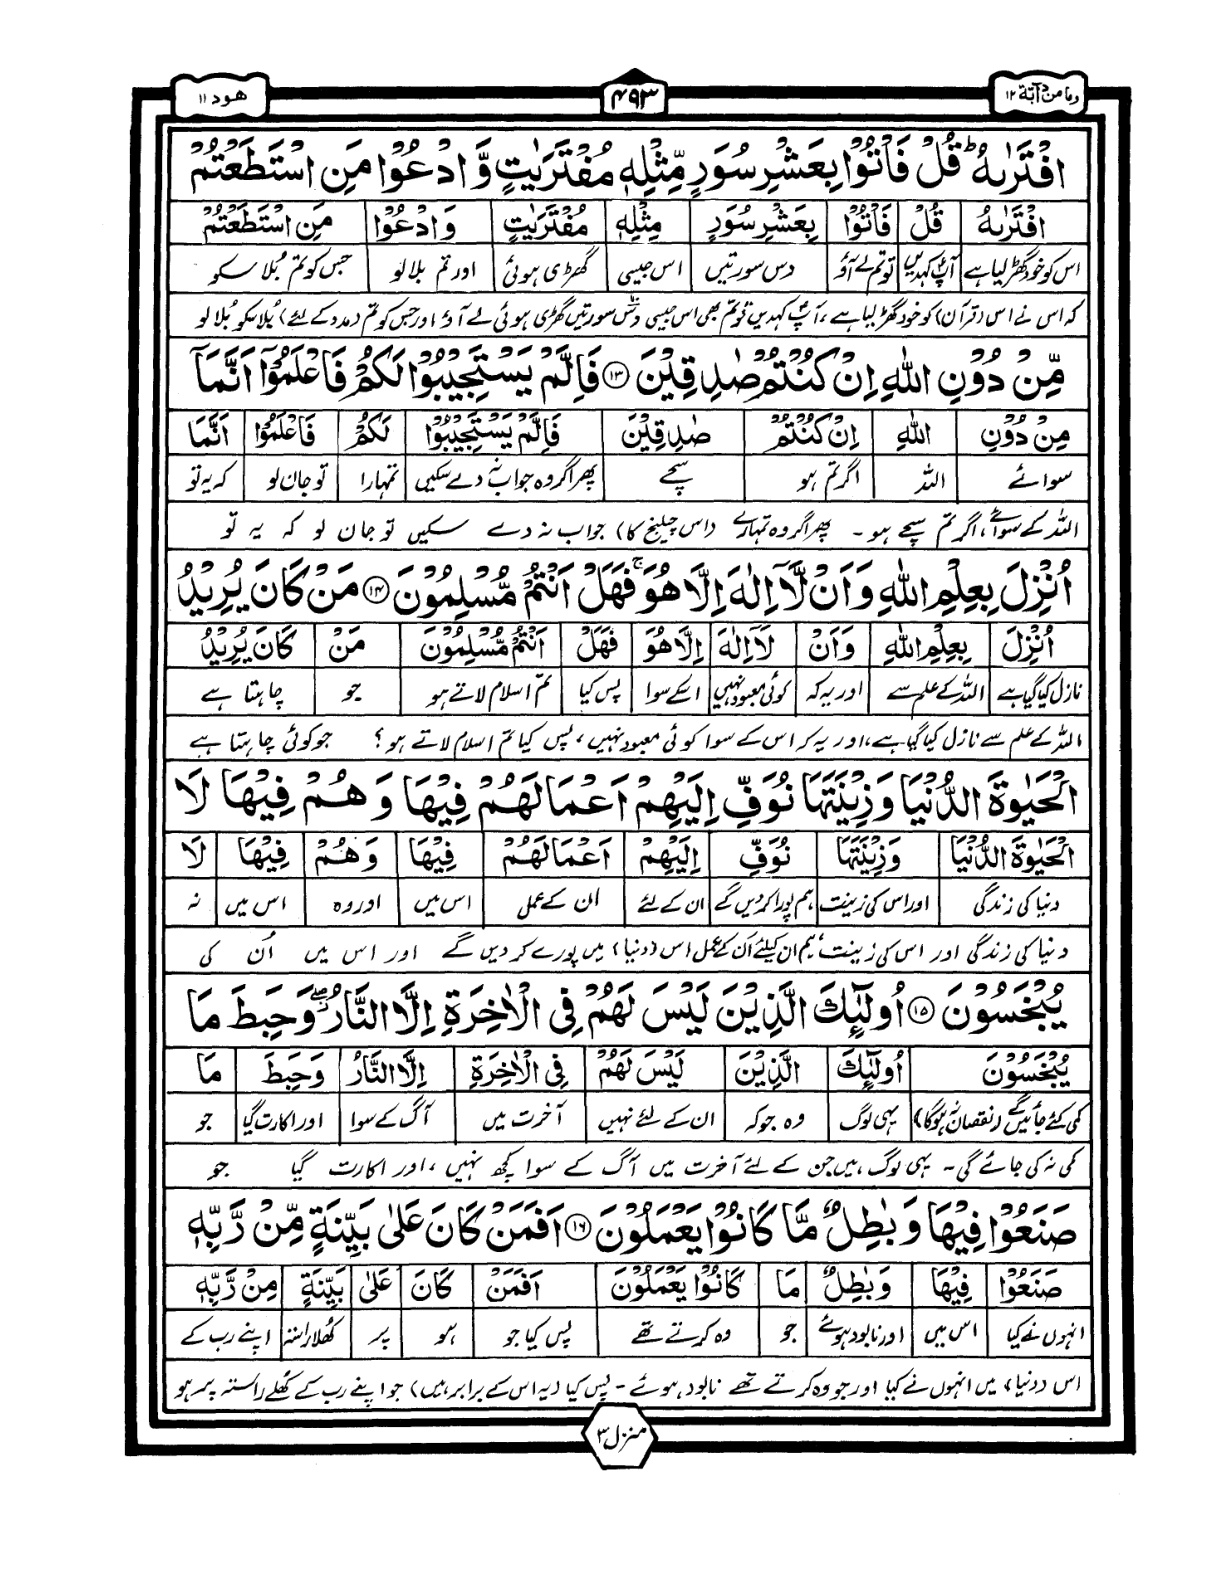 وما من دآبة ۱۲ ۴۹۳ هود ۱۱
افْتَرٰىهُ ؕ قُلْ فَاْتُوْا بِعَشْرِ سُوَرٍ مِّثْلِهٖ مُفْتَرَيٰتٍ وَّ ادْعُوْا مَنِ اسْتَطَعْتُمْ
افْتَرٰىهُ قُلْ فَاْتُوْا بِعَشْرِ سُوَرٍ مِثْلِهٖ مُفْتَرَيٰتٍ وَ ادْعُوْا مَنِ اسْتَطَعْتُمْ
اس کو خود گھڑ لیا ہے آپ کہدیں تو تم لے آؤ دس سورتیں اس جیسی گھڑی ہوئی اور تم بلا لو جس کو تم بُلا سکو
کہ اس نے اس (قرآن) کو خود گھڑ لیا ہے، آپ کہدیں تو تم بھی اس جیسی دس سورتیں گھڑی ہوئی لے آؤ اور جس کو تم (مدد کے لئے) بُلا سکو بُلا لو
مِّنْ دُوْنِ اللّٰهِ اِنْ كُنْتُمْ صٰدِقِيْنَ ۱۳ فَاِلَّمْ يَسْتَجِيْبُوْا لَكُمْ فَاعْلَمُوْٓا اَنَّمَآ
مِنْ دُوْنِ اللّٰهِ اِنْ كُنْتُمْ صٰدِقِيْنَ فَاِلَّمْ يَسْتَجِيْبُوْا لَكُمْ فَاعْلَمُوْٓا اَنَّمَا
سوائے اللہ اگر تم ہو سچے پھر اگر وہ جواب نہ دے سکیں تمہارا تو جان لو کہ یہ تو
اللہ کے سوائے، اگر تم سچے ہو۔ پھر اگر وہ تمہارے (اس چیلنج کا) جواب نہ دے سکیں تو جان لو کہ یہ تو
اُنْزِلَ بِعِلْمِ اللّٰهِ وَاَنْ لَّآ اِلٰهَ اِلَّا هُوَ ۚ فَهَلْ اَنْتُمْ مُّسْلِمُوْنَ ۱۴ مَنْ كَانَ يُرِيْدُ
اُنْزِلَ بِعِلْمِ اللّٰهِ وَاَنْ لَآ اِلٰهَ اِلَّا هُوَ فَهَلْ اَنْتُمْ مُّسْلِمُوْنَ مَنْ كَانَ يُرِيْدُ
نازل کیا گیا ہے اللہ کے علم سے اور یہ کہ کوئی معبود نہیں اسکے سوا پس کیا تم اسلام لاتے ہو جو چاہتا ہے
اللہ کے علم سے نازل کیا گیا ہے، اور یہ کہ اس کے سوا کوئی معبود نہیں، پس کیا تم اسلام لاتے ہو؟ جو کوئی چاہتا ہے
الْحَيٰوةَ الدُّنْيَا وَزِيْنَتَهَا نُوَفِّ اِلَيْهِمْ اَعْمَالَهُمْ فِيْهَا وَهُمْ فِيْهَا لَا
الْحَيٰوةَ الدُّنْيَا وَزِيْنَتَهَا نُوَفِّ اِلَيْهِمْ اَعْمَالَهُمْ فِيْهَا وَهُمْ فِيْهَا لَا
دنیا کی زندگی اور اس کی زینت ہم پورا کردیں گے ان کے لئے ان کے عمل اس میں اور وہ اس میں نہ
دنیا کی زندگی اور اس کی زینت، ہم ان کیلئے اُن کے عمل اس (دنیا) میں پورے کر دیں گے اور اس میں اُن کی
يُبْخَسُوْنَ ۱۵ اُولٰٓئِكَ الَّذِيْنَ لَيْسَ لَهُمْ فِي الْاٰخِرَةِ اِلَّا النَّارُ ۖ وَحَبِطَ مَا
يُبْخَسُوْنَ اُولٰٓئِكَ الَّذِيْنَ لَيْسَ لَهُمْ فِي الْاٰخِرَةِ اِلَّا النَّارُ وَحَبِطَ مَا
کمی کئے جائیں گے (نقصان نہ ہوگا) یہی لوگ وہ جو کہ ان کے لئے نہیں آخرت میں آگ کے سوا اور اکارت گیا جو
کمی نہ کی جائے گی۔ یہی لوگ ہیں جن کے لئے آخرت میں آگ کے سوا کچھ نہیں، اور اکارت گیا جو
صَنَعُوْا فِيْهَا وَبٰطِلٌ مَّا كَانُوْا يَعْمَلُوْنَ ۱۶ اَفَمَنْ كَانَ عَلٰى بَيِّنَةٍ مِّنْ رَّبِّهٖ
صَنَعُوْا فِيْهَا وَبٰطِلٌ مَا كَانُوْا يَعْمَلُوْنَ اَفَمَنْ كَانَ عَلٰى بَيِّنَةٍ مِنْ رَّبِّهٖ
انہوں نے کیا اس میں اور نابود ہوئے جو وہ کرتے تھے پس کیا جو ہو پر کھلا راستہ اپنے رب کے
اس (دنیا) میں انہوں نے کیا اور جو وہ کرتے تھے نابود ہوئے۔ پس کیا (یہ اس کے برابر ہیں) جو اپنے رب کے کُھلے راستہ پر ہو
منزل ۳